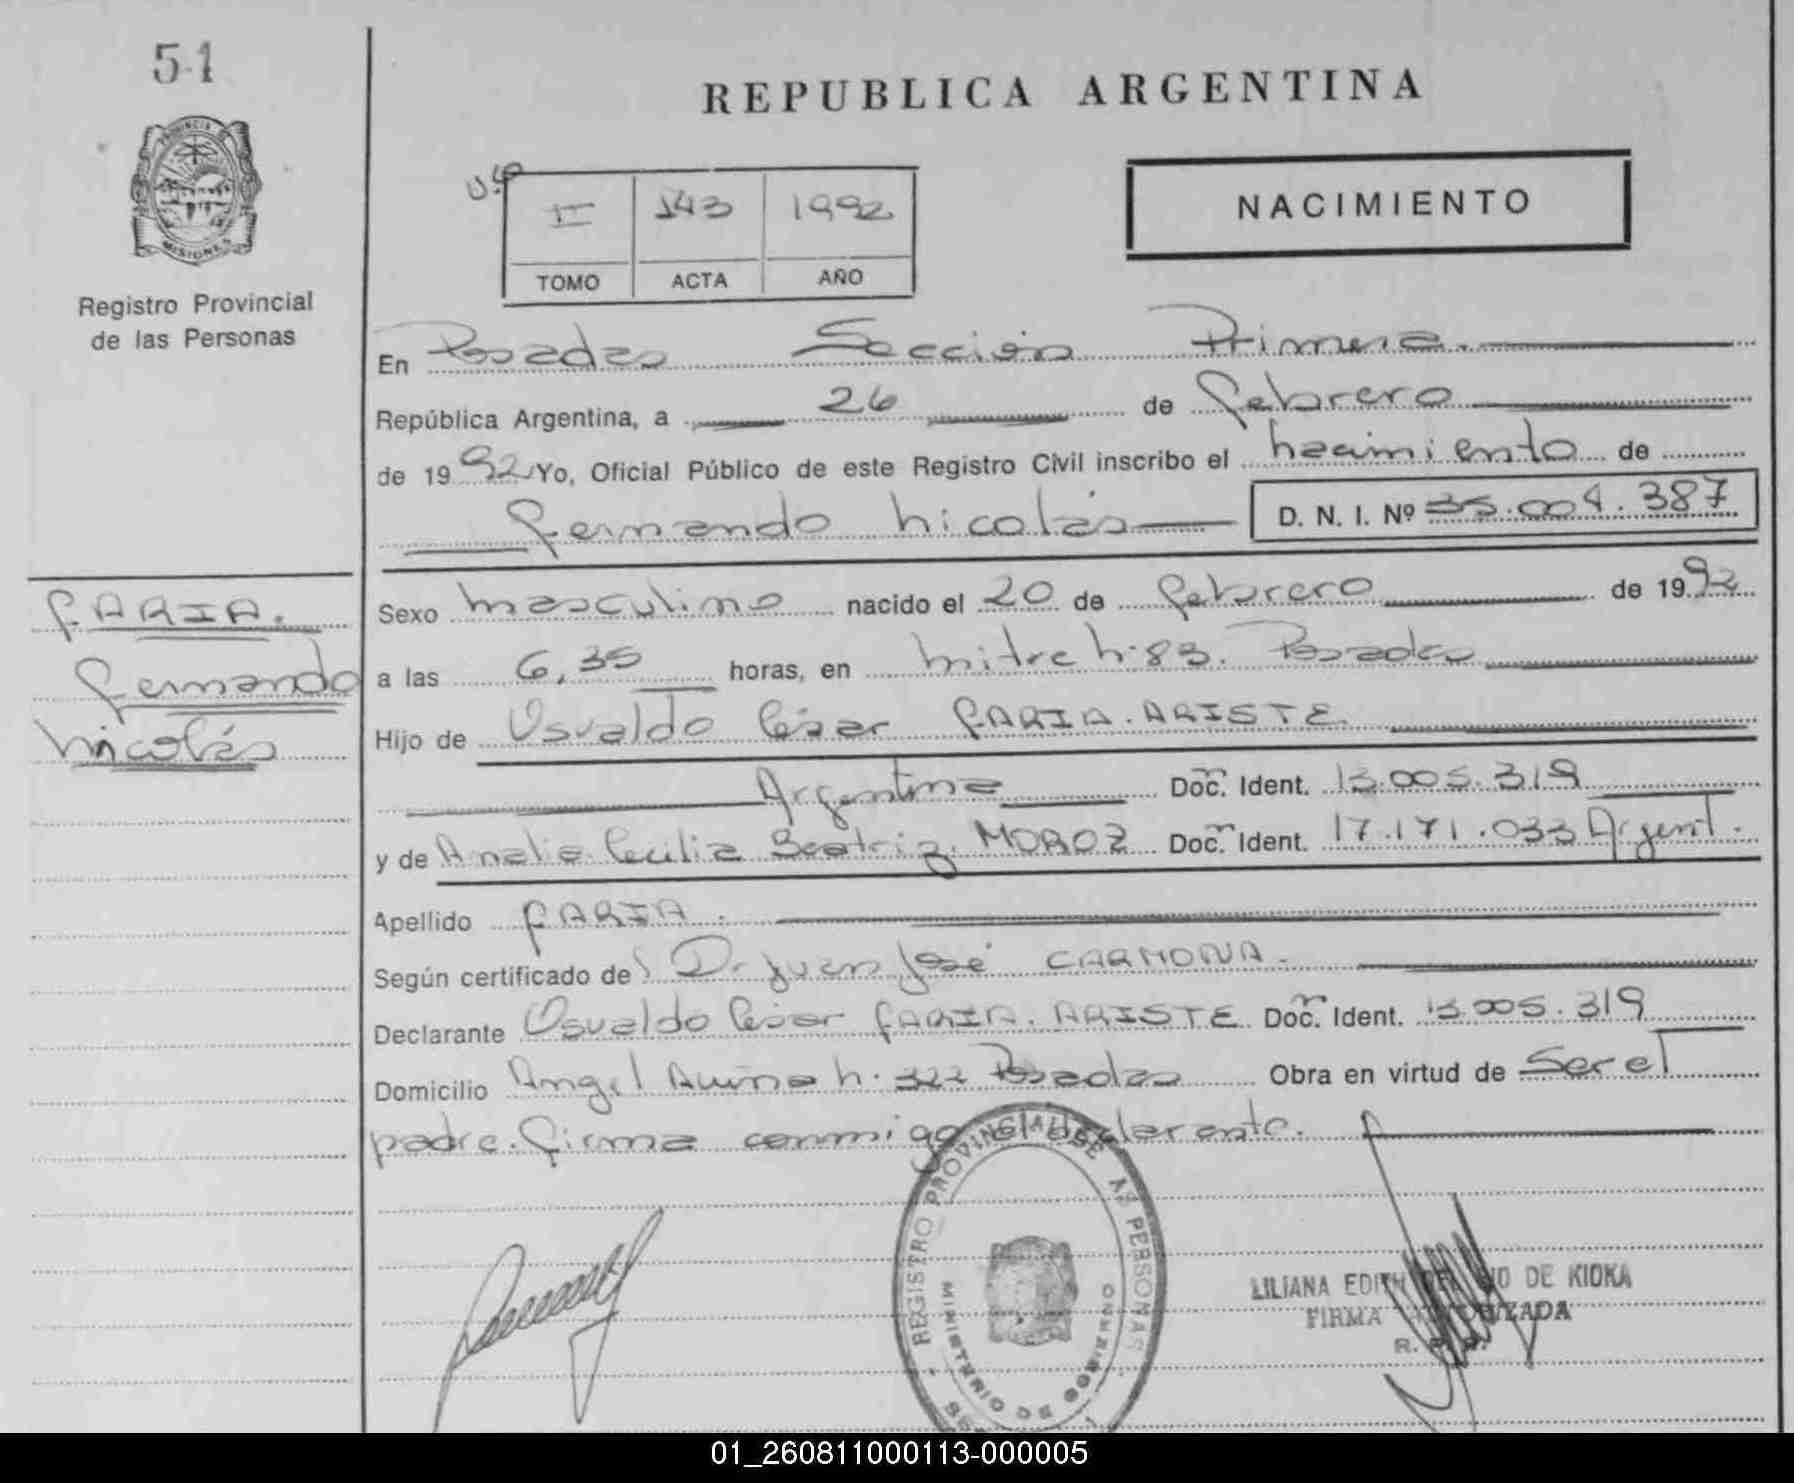 51
PROVINCIA DE
MISIONES
Registro Provincial
de las Personas
REPUBLICA ARGENTINA
II 143 1992
TOMO ACTA AÑO
NACIMIENTO
En Posadas Sección Primera.
República Argentina, a 26 de febrero
de 1992 Yo, Oficial Público de este Registro Civil inscribo el nacimiento de
Fernando Nicolás D. N. I. Nº 35.004.387
FARIA.
Fernando
Nicolás
Sexo masculino nacido el 20 de febrero de 1992
a las 6,35 horas, en Mitre N. 83. Posadas
Hijo de Osvaldo César FARIA. ARISTE.
Argentina Doc. Ident. 13.005.319
y de Analia Cecilia Beatriz. MOROZ Doc. Ident. 17.171.033 Argent.
Apellido FARIA.
Según certificado de Dr Juan José CARMONA.
Declarante Osvaldo César FARIA. ARISTE Doc. Ident. 13.005.319
Domicilio Angel N. 322 Posadas Obra en virtud de Ser el
padre. Firma conmigo el declarante.
REGISTRO PROVINCIAL DE AS PERSONAS
MINISTERIO DE GOBIERNO
LILIANA EDITH DE KIOKA
FIRMA AUTORIZADA
R. P. P.
01_260811000113-000005